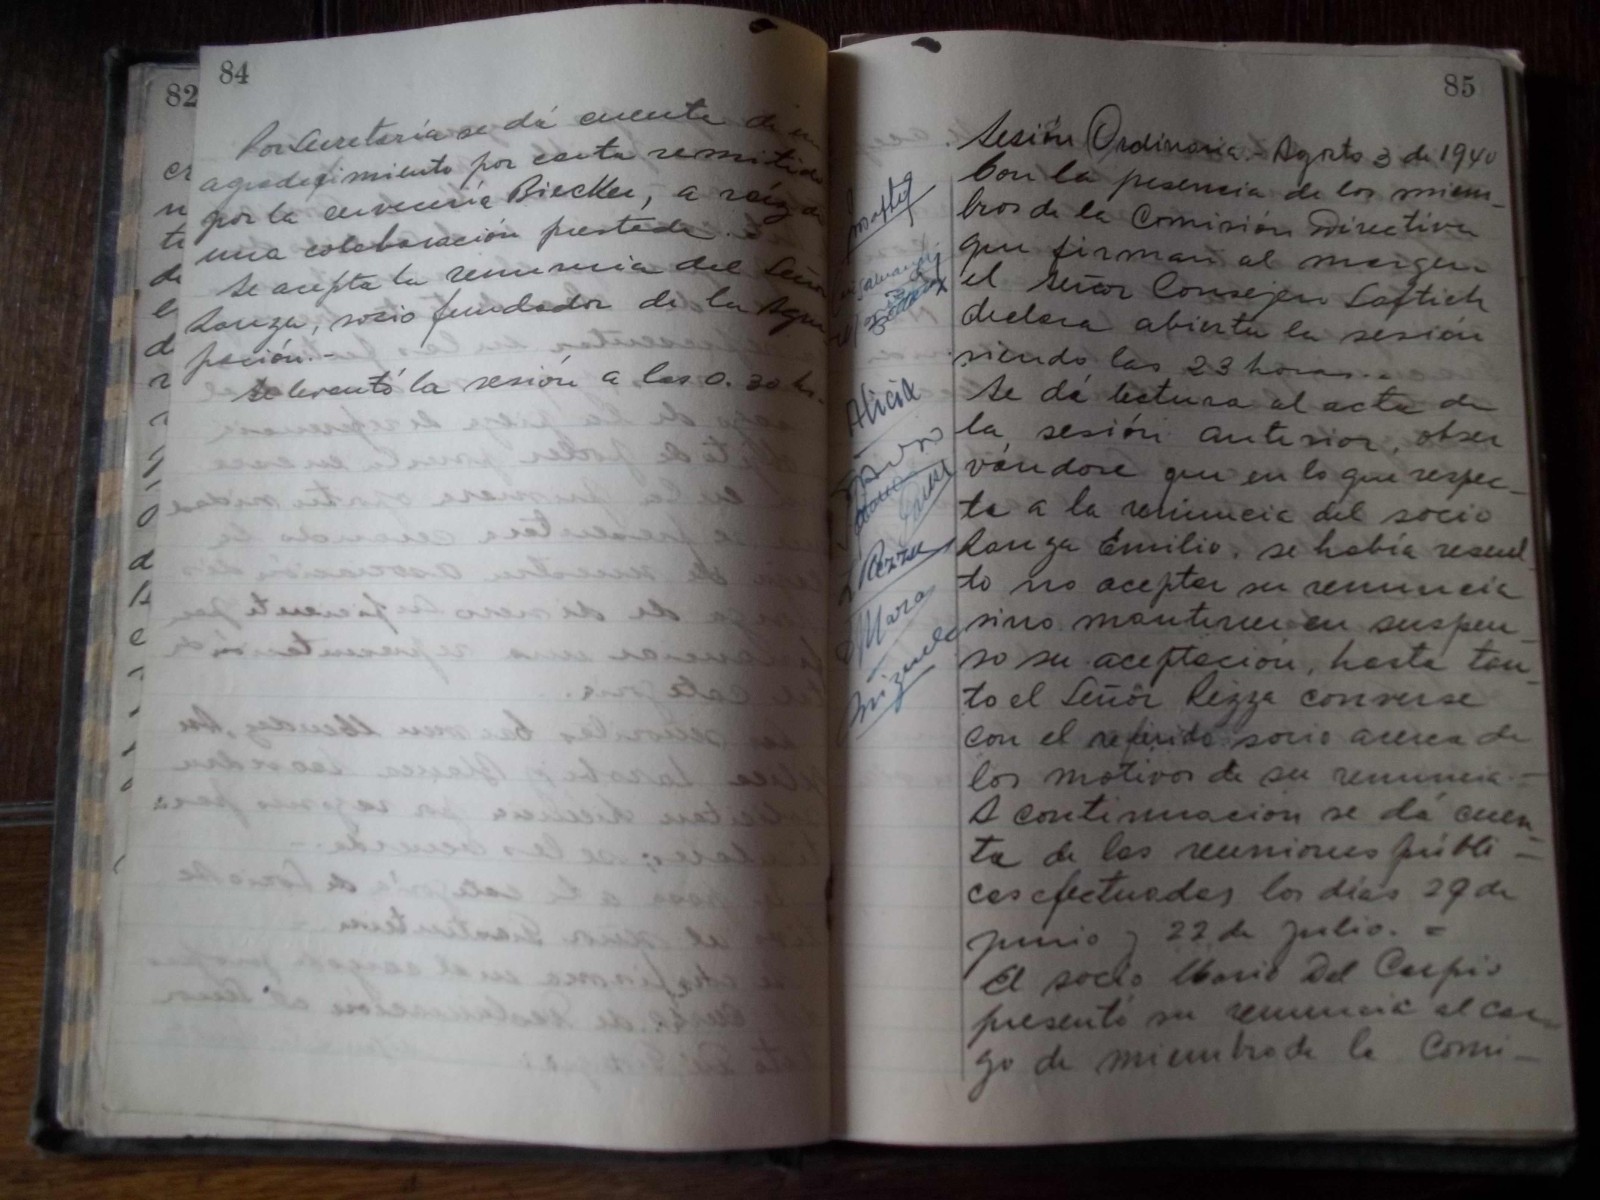 84
82
Por Secretaría se dá cuenta de un
agradecimiento por carta remitido
por la cervecería Biecker, a raíz de
una colaboración prestada.
Se acepta la renuncia del Señor
Lanza, socio fundador de la Agru
pación.-
Se levantó la sesión a las 0.30 hs.
85
Sesión Ordinaria.- Agosto 3 de 1940
Con la presencia de los miem-
bros de la Comisión Directiva
que firman al margen
el Señor Consejero Saftich
declara abierta la sesión
siendo las 23 horas.-
Se dá lectura al acta de
la sesión anterior, obser
vándose que en lo que respec-
ta a la renuncia del socio
Lanza Emilio, se había resuel
to no aceptar su renuncia
sino mantener en suspen-
so su aceptación, hasta tan-
to el Señor Rezza converse
con el referido socio acerca de
los motivos de su renuncia.-
A continuación se dá cuen-
ta de las reuniones públi-
cas efectuadas los días 29 de
junio y 22 de julio. =
El socio Mario Del Carpio
presentó su renuncia al car-
go de miembro de la Comi-
Alicia
Rezza
Mara